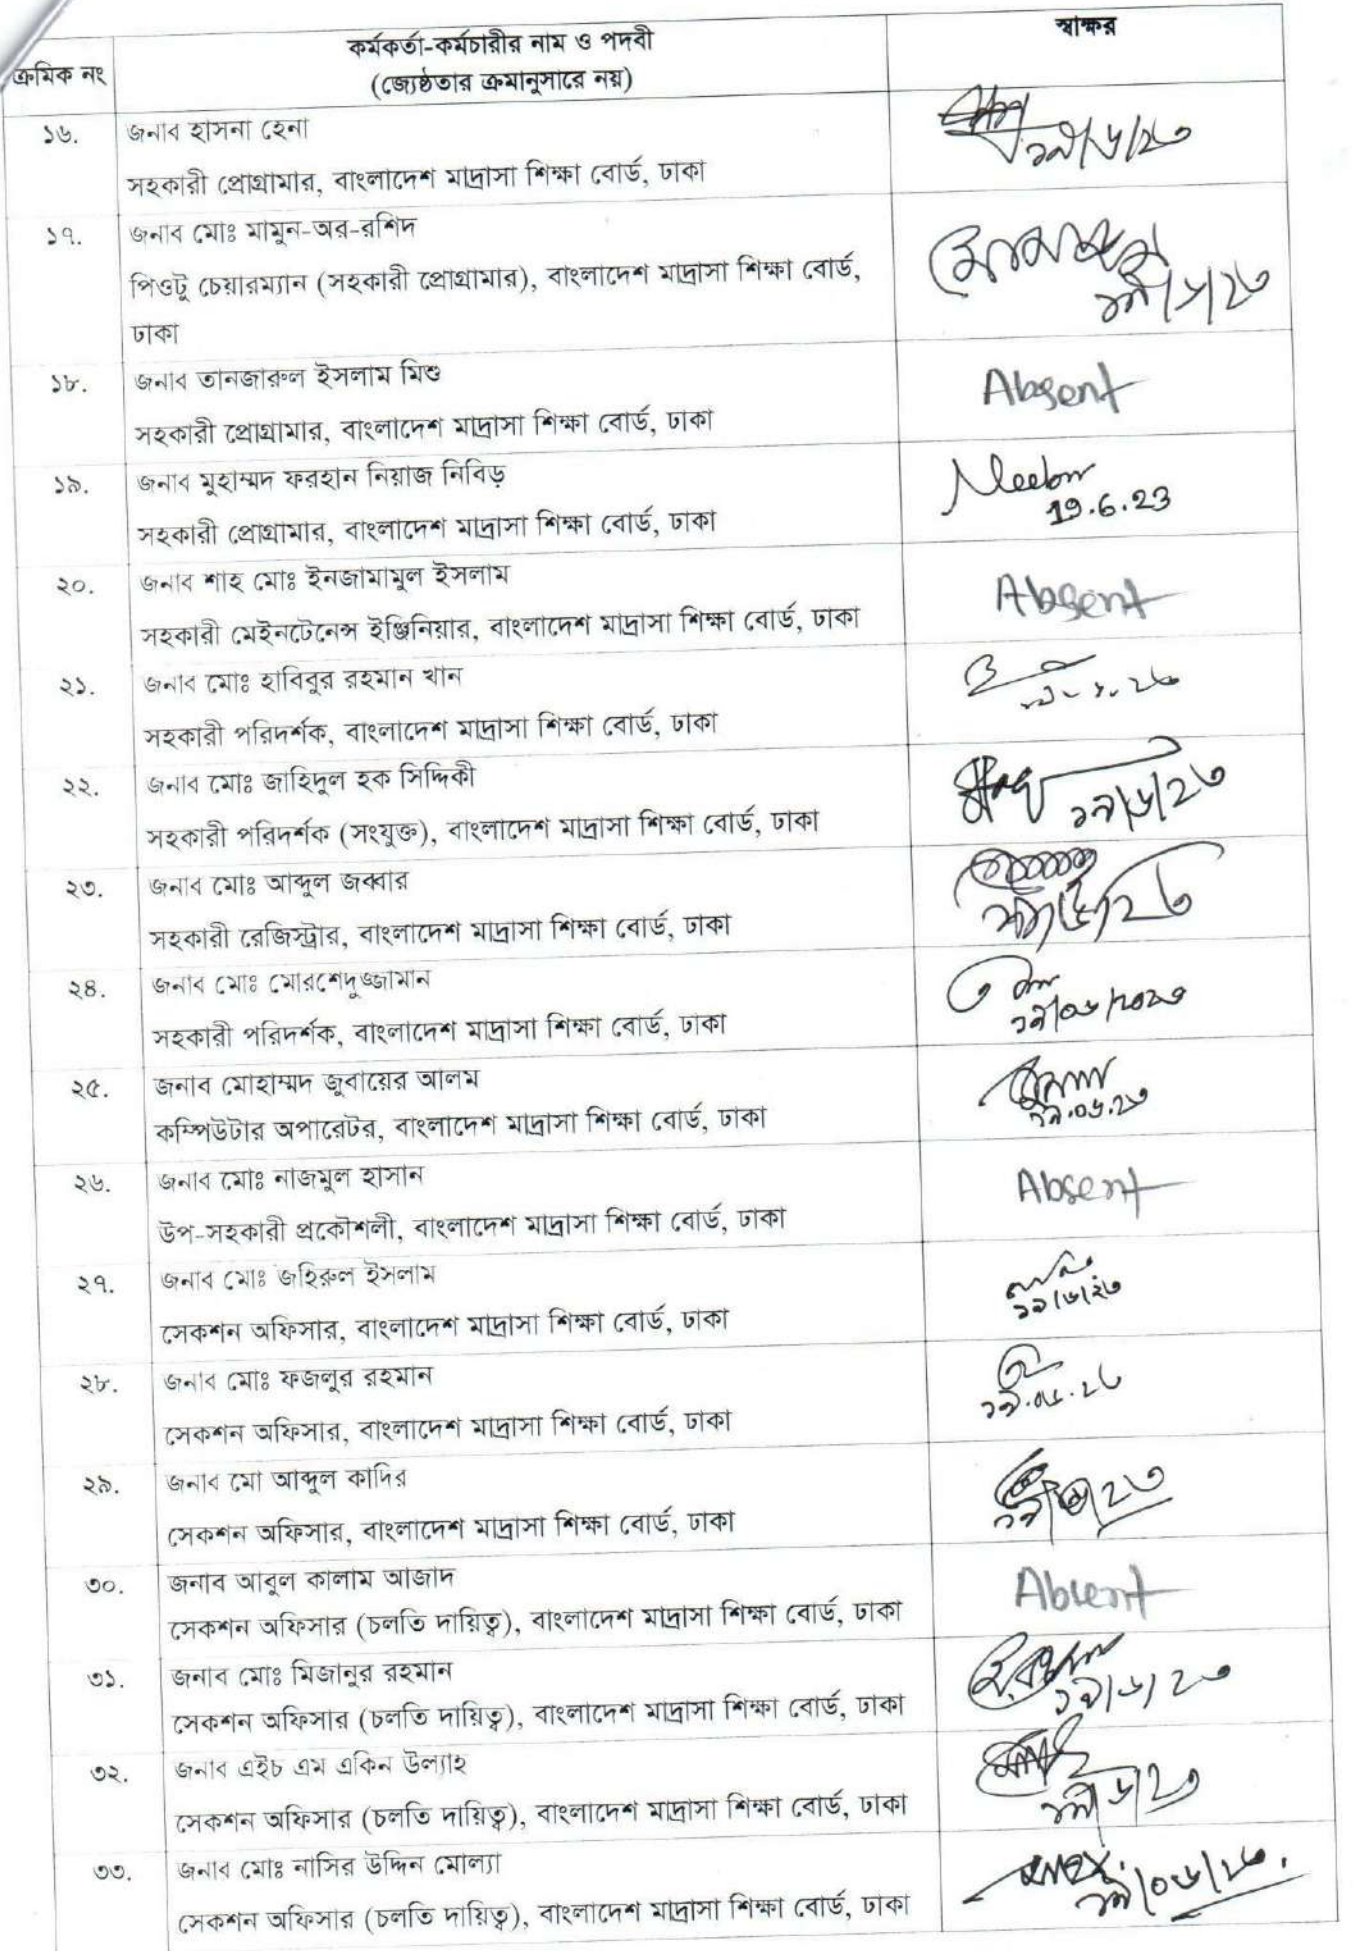 ক্রমিক নং
কর্মকর্তা-কর্মচারীর নাম ও পদবী
(জ্যেষ্ঠতার ক্রমানুসারে নয়)
স্বাক্ষর
১৬.
জনাব হাসনা হেনা
সহকারী প্রোগ্রামার, বাংলাদেশ মাদ্রাসা শিক্ষা বোর্ড, ঢাকা
১৯/৬/২৩
১৭.
জনাব মোঃ মামুন-অর-রশিদ
পিওটু চেয়ারম্যান (সহকারী প্রোগ্রামার), বাংলাদেশ মাদ্রাসা শিক্ষা বোর্ড,
ঢাকা
১৯/৬/২৩
১৮.
জনাব তানজারুল ইসলাম মিশু
সহকারী প্রোগ্রামার, বাংলাদেশ মাদ্রাসা শিক্ষা বোর্ড, ঢাকা
Absent
১৯.
জনাব মুহাম্মদ ফরহান নিয়াজ নিবিড়
সহকারী প্রোগ্রামার, বাংলাদেশ মাদ্রাসা শিক্ষা বোর্ড, ঢাকা
19.6.23
২০.
জনাব শাহ মোঃ ইনজামামুল ইসলাম
সহকারী মেইনটেনেন্স ইঞ্জিনিয়ার, বাংলাদেশ মাদ্রাসা শিক্ষা বোর্ড, ঢাকা
Absent
২১.
জনাব মোঃ হাবিবুর রহমান খান
সহকারী পরিদর্শক, বাংলাদেশ মাদ্রাসা শিক্ষা বোর্ড, ঢাকা
২২.
জনাব মোঃ জাহিদুল হক সিদ্দিকী
সহকারী পরিদর্শক (সংযুক্ত), বাংলাদেশ মাদ্রাসা শিক্ষা বোর্ড, ঢাকা
১৯/৬/২৩
২৩.
জনাব মোঃ আব্দুল জব্বার
সহকারী রেজিস্ট্রার, বাংলাদেশ মাদ্রাসা শিক্ষা বোর্ড, ঢাকা
১৯/৬/২৩
২৪.
জনাব মোঃ মোরশেদুজ্জামান
সহকারী পরিদর্শক, বাংলাদেশ মাদ্রাসা শিক্ষা বোর্ড, ঢাকা
১৯/০৬/২০২৩
২৫.
জনাব মোহাম্মদ জুবায়ের আলম
কম্পিউটার অপারেটর, বাংলাদেশ মাদ্রাসা শিক্ষা বোর্ড, ঢাকা
১৯.০৬.২৩
২৬.
জনাব মোঃ নাজমুল হাসান
উপ-সহকারী প্রকৌশলী, বাংলাদেশ মাদ্রাসা শিক্ষা বোর্ড, ঢাকা
Absent
২৭.
জনাব মোঃ জহিরুল ইসলাম
সেকশন অফিসার, বাংলাদেশ মাদ্রাসা শিক্ষা বোর্ড, ঢাকা
১৯/৬/২৩
২৮.
জনাব মোঃ ফজলুর রহমান
সেকশন অফিসার, বাংলাদেশ মাদ্রাসা শিক্ষা বোর্ড, ঢাকা
১৯.০৬.২৩
২৯.
জনাব মো আব্দুল কাদির
সেকশন অফিসার, বাংলাদেশ মাদ্রাসা শিক্ষা বোর্ড, ঢাকা
১৯/৬/২৩
৩০.
জনাব আবুল কালাম আজাদ
সেকশন অফিসার (চলতি দায়িত্ব), বাংলাদেশ মাদ্রাসা শিক্ষা বোর্ড, ঢাকা
Absent
৩১.
জনাব মোঃ মিজানুর রহমান
সেকশন অফিসার (চলতি দায়িত্ব), বাংলাদেশ মাদ্রাসা শিক্ষা বোর্ড, ঢাকা
১৯/৬/২৩
৩২.
জনাব এইচ এম একিন উল্যাহ
সেকশন অফিসার (চলতি দায়িত্ব), বাংলাদেশ মাদ্রাসা শিক্ষা বোর্ড, ঢাকা
১৯/৬/২৩
৩৩.
জনাব মোঃ নাসির উদ্দিন মোল্যা
সেকশন অফিসার (চলতি দায়িত্ব), বাংলাদেশ মাদ্রাসা শিক্ষা বোর্ড, ঢাকা
১৯/০৬/২৩.